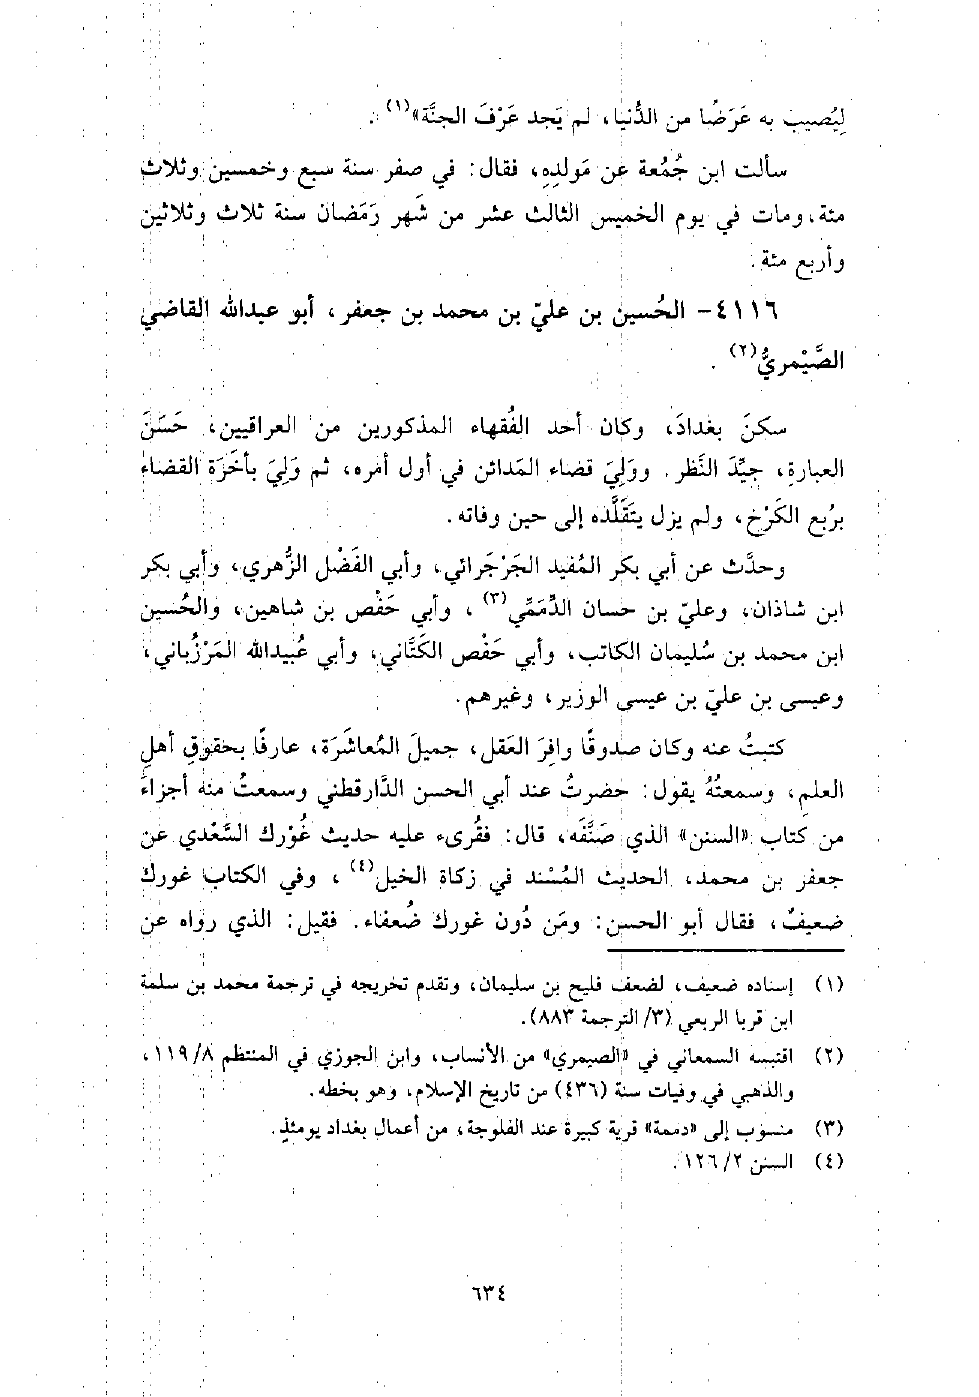 لِيُصيب به عَرَضًا من الدُّنيا، لم يَجد عَرْفَ الجنَّة»(١) .
سألت ابن جُمُعة عن مَولدِهِ، فقال: في صفر سنة سبع وخمسين وثلاث
مئة، ومات في يوم الخميس الثالث عشر من شَهر رَمَضان سنة ثلاث وثلاثين
وأربع مئة .
٤١١٦- الحُسين بن عليّ بن محمد بن جعفر، أبو عبدالله القاضي
الصَّيْمريُّ(٢) .
سكنَ بغدادَ، وكان أحد الفُقهاء المذكورين من العراقيين، حَسَنَ
العبارةِ، جيِّدَ النَّظر . ووَلِيَ قضاء المَدائن في أول أمره، ثم وَلِيَ بأَخَرَة القضاء
برُبع الكَرْخ، ولم يزل يتَقَلَّده إلى حين وفاته .
وحدَّث عن أبي بكر المُفيد الجَرْجَرائي، وأبي الفَضْل الزُّهري، وأبي بكر
ابن شاذان، وعليّ بن حسان الدِّمَمِّي(٣) ، وأبي حَفْص بن شاهين، والحُسين
ابن محمد بن سُليمان الكاتب، وأبي حَفْص الكَتَّاني، وأبي عُبيدالله المَرْزُباني،
وعيسى بن عليّ بن عيسى الوزير، وغيرهم .
كتبتُ عنه وكان صدوقًا وافِرَ العَقل، جميلَ المُعاشَرَة، عارفًا بحقوقِ أهلِ
العلمِ، وسمعتُهُ يقول: حضرتُ عند أبي الحسن الدَّارقطني وسمعتُ منه أجزاءً
من كتاب «السنن» الذي صَنَّفَه، قال: فقُرىء عليه حديث غُوْرك السَّعْدي عن
جعفر بن محمد، الحديث المُسْند في زكاة الخيل(٤) ، وفي الكتاب غورك
ضعيفٌ، فقال أبو الحسن: ومَن دُون غورك ضُعفاء. فقيل: الذي رواه عن
(١) إسناده ضعيف، لضعف فليح بن سليمان، وتقدم تخريجه في ترجمة محمد بن سلمة
ابن قربا الربعي (٣/ الترجمة ٨٨٣).
(٢) اقتبسه السمعاني في «الصيمري» من الأنساب، وابن الجوزي في المنتظم ٨/ ١١٩،
والذهبي في وفيات سنة (٤٣٦) من تاريخ الإسلام، وهو بخطه .
(٣) منسوب إلى «دممة» قرية كبيرة عند الفلوجة، من أعمال بغداد يومئذٍ .
(٤) السنن ٢/ ١٢٦ .
٦٣٤